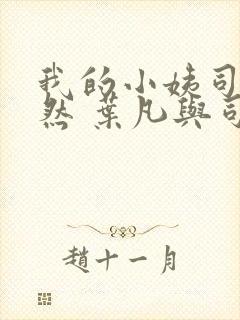 我的小姨司
然 葉凡與司
趙十一月